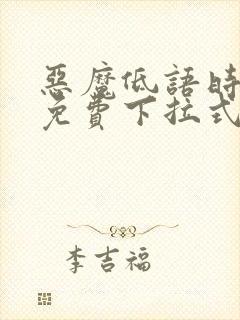 惡魔低語時
免費下拉式
李吉福